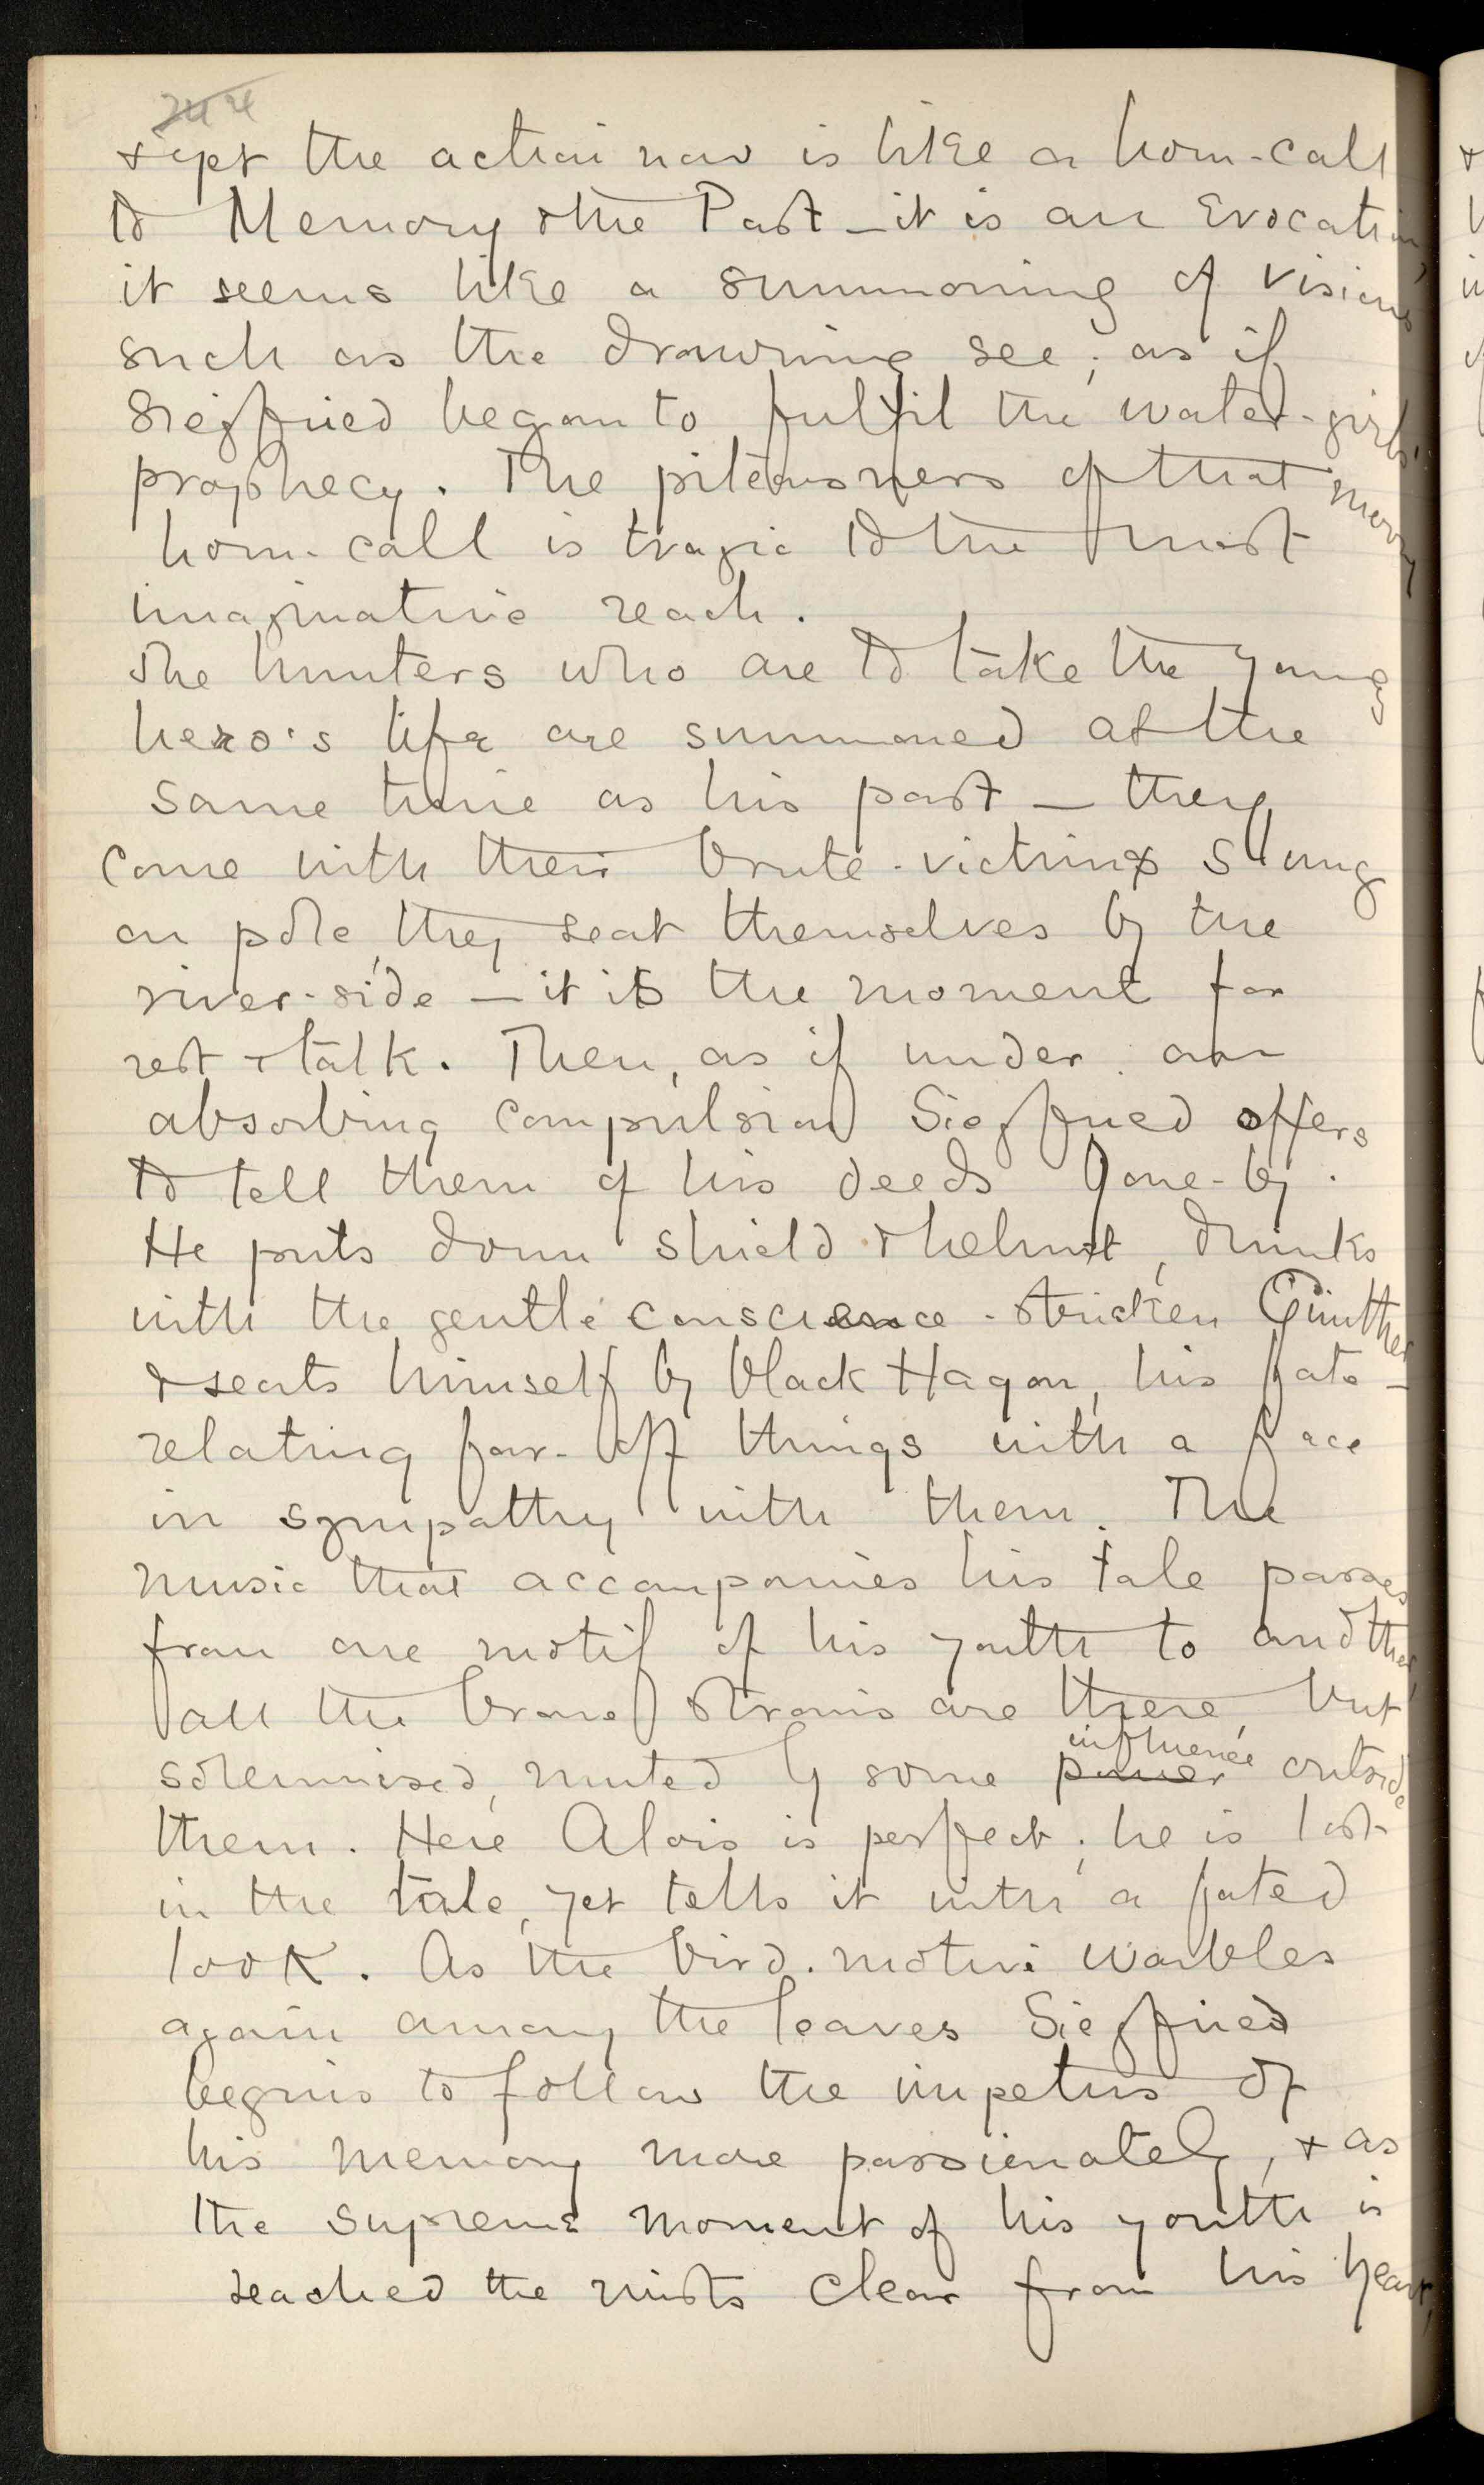 & yet the action now is like a horn-call
to Memory & the Past – it is an Evocation,
it seems like a summoning of visions
such as the drowning see; as if
Siegfried began to fulfil the water-girls'
prophecy. The piteousness of that merry
horn-call is tragic to the finest
imaginative reach.
The hunters who are to take the young
hero's life are summoned at the
same time as his past – they
come with their brute-victims slung
on pole, they seat themselves by the
river-side – it is the moment for
rest & talk. Then, as if under an
absorbing compulsion Siegfried offers
to tell them of his deeds gone-by.
He puts down shield & helmet, drinks
with the gentle conscience-stricken Günther
& seats himself by black Hagan, his fate –
relating far-off things with a face
in sympathy with them. The
music that accompanies his tale passes
from one motif of his youth to another,
all the brave strains are there, but
solemnised, muted by some power influence outside
them. Here Alois is perfect; he is lost
in the tale, yet tells it with a fated
look. As the bird-motive warbles
again among the leaves Siegfried
begins to follow the impetus of
his memory more passionately, & as
the supreme moment of his youth is
reached the mists clear from his heart,